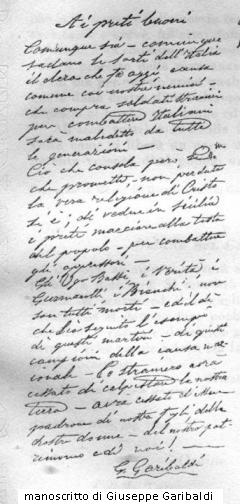 Ai preti buoni
Comunque sia – comunque
vadano le sorti dell'Italia
il clero che fa oggi causa
comune coi nostri nemici –
che compra soldati stranieri
per combattere Italiani
sarà maledetto da tutte
le generazioni –
Ciò che consola però, e
che promette, non perduta
la vera religione di Cristo
si è, di vedere in Sicilia
i preti marciare alla testa
del popolo – per combattere
gli oppressori –
Gli Ugo Bassi, i Verità, i
Gusmaroli i Bianchi, non
son tutti morti – e il dì
che sia seguito l'esempio
di questi martiri – di questi
campioni della causa nazio
nale – lo straniero avrà
cessato di calpestare la nostra
terra – avrà cessato d'essere
padrone di nostri figli, delle
nostre donne – del nostro pat-
rimonio e di noi!
G. Garibaldi
manoscritto di Giuseppe Garibaldi